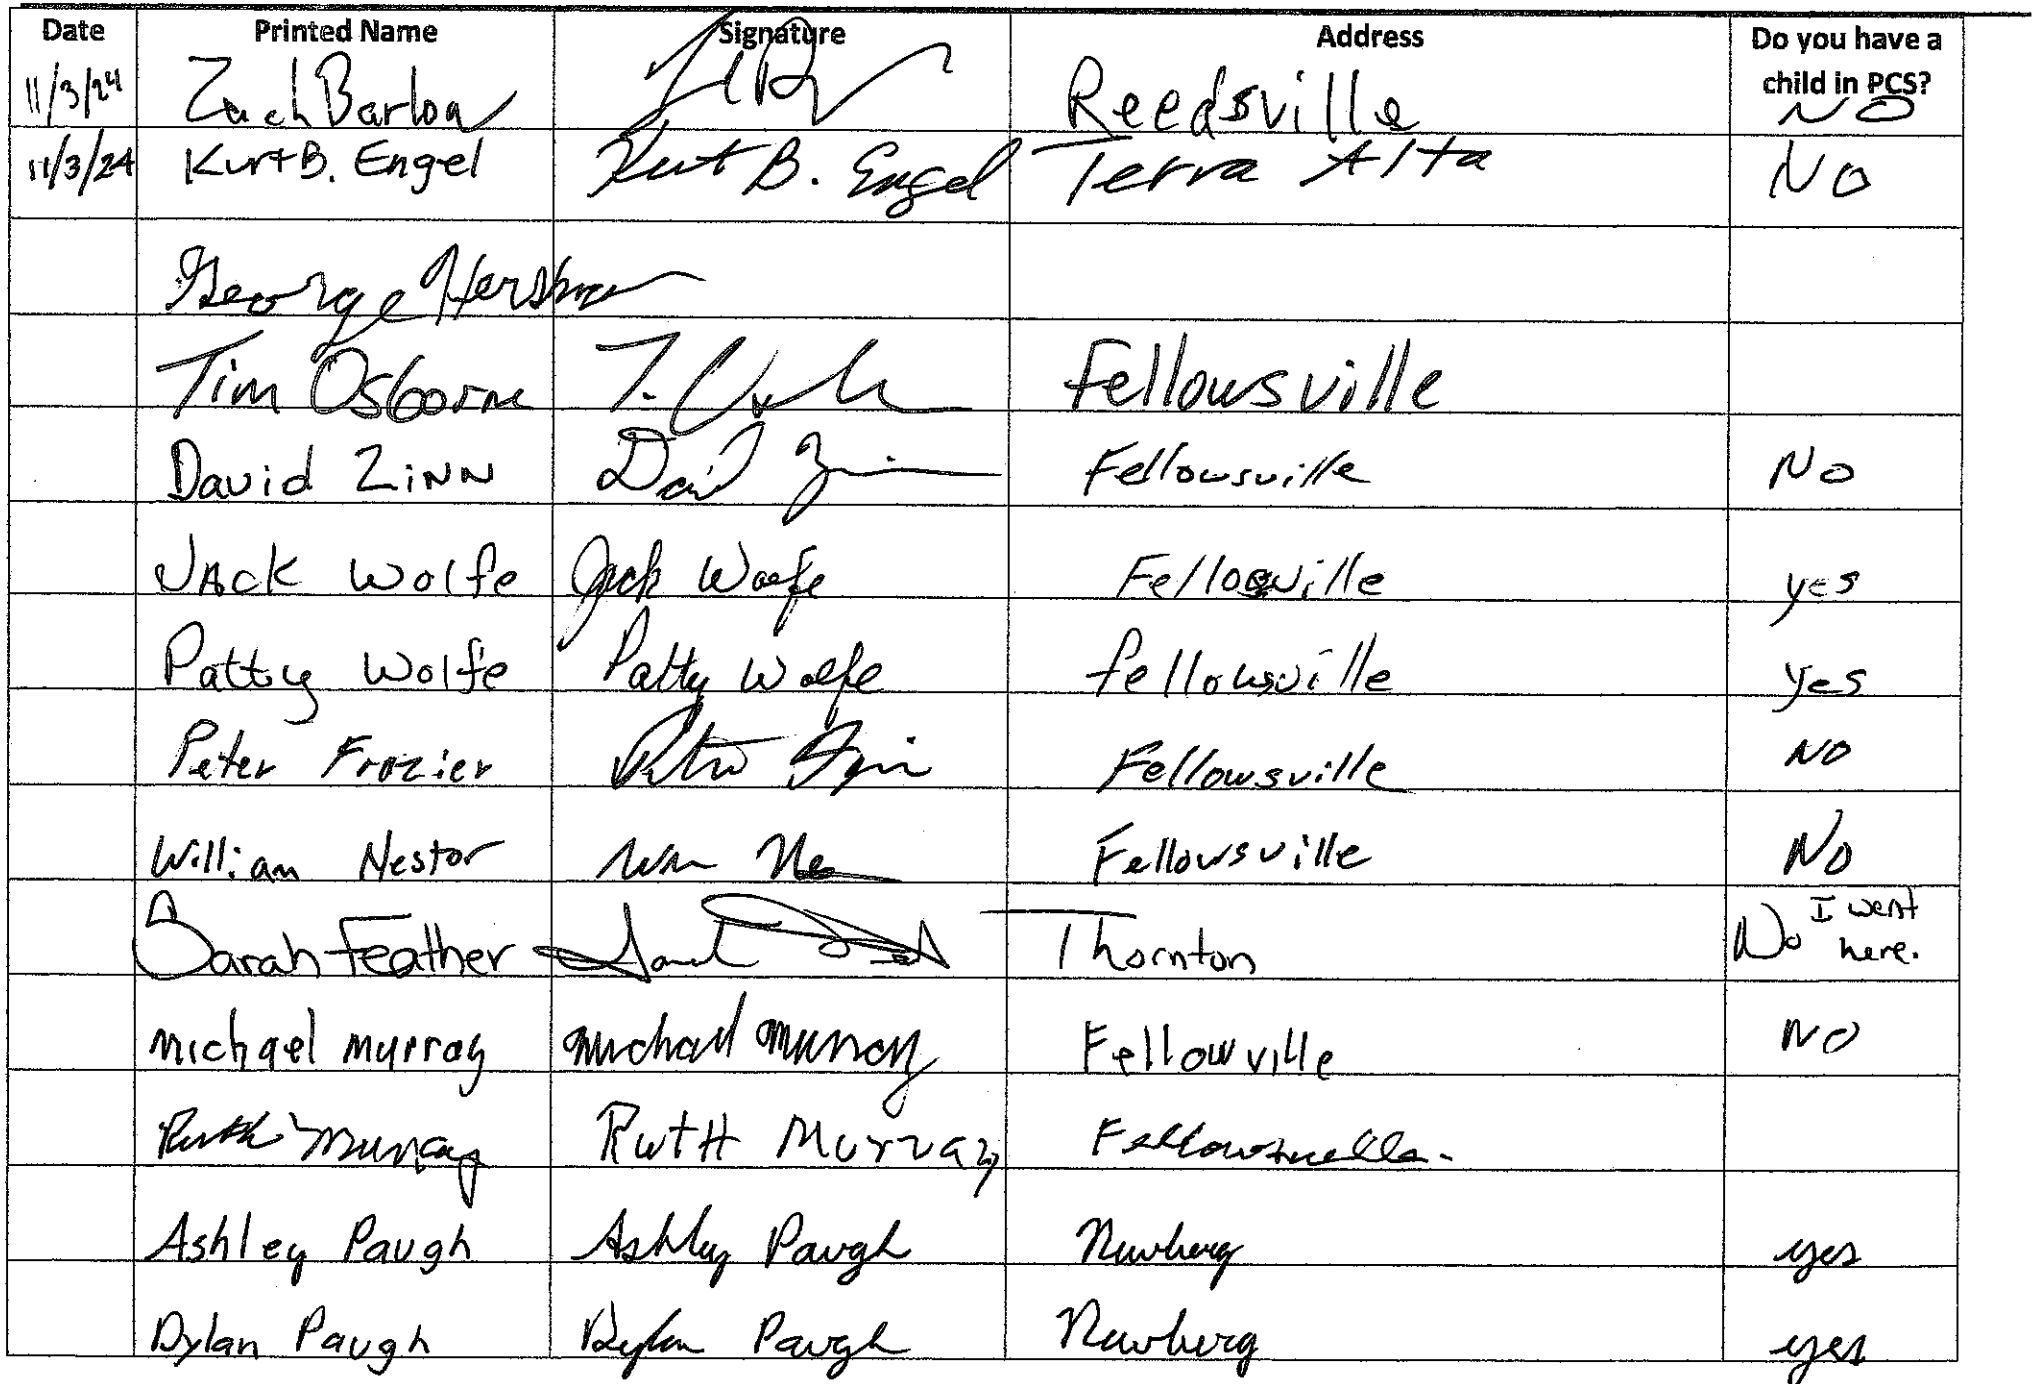 Date Printed Name Signature Address Do you have a child in PCS?
11/3/24 Zach Barlow Reedsville NO
11/3/24 Kurt B. Engel Kurt B. Engel Terra Alta No
George Hershman
Tim Osborne T. Fellowsville
David Zinn David Zinn Fellowsville No
Jack Wolfe Jack Wolfe Felloville yes
Patty Wolfe Patty Wolfe fellowsville yes
Peter Frazier Peter Fellowsville NO
William Nestor Wm Ne Fellowsville No
Sarah Feather Sarah Thornton No I went here.
Michael Murray Michael Murray Fellowville NO
Ruth Murray RutH Murray Fellowsville.
Ashley Paugh Ashley Paugh Newberg yes
Dylan Paugh Dylan Paugh Newberg yes